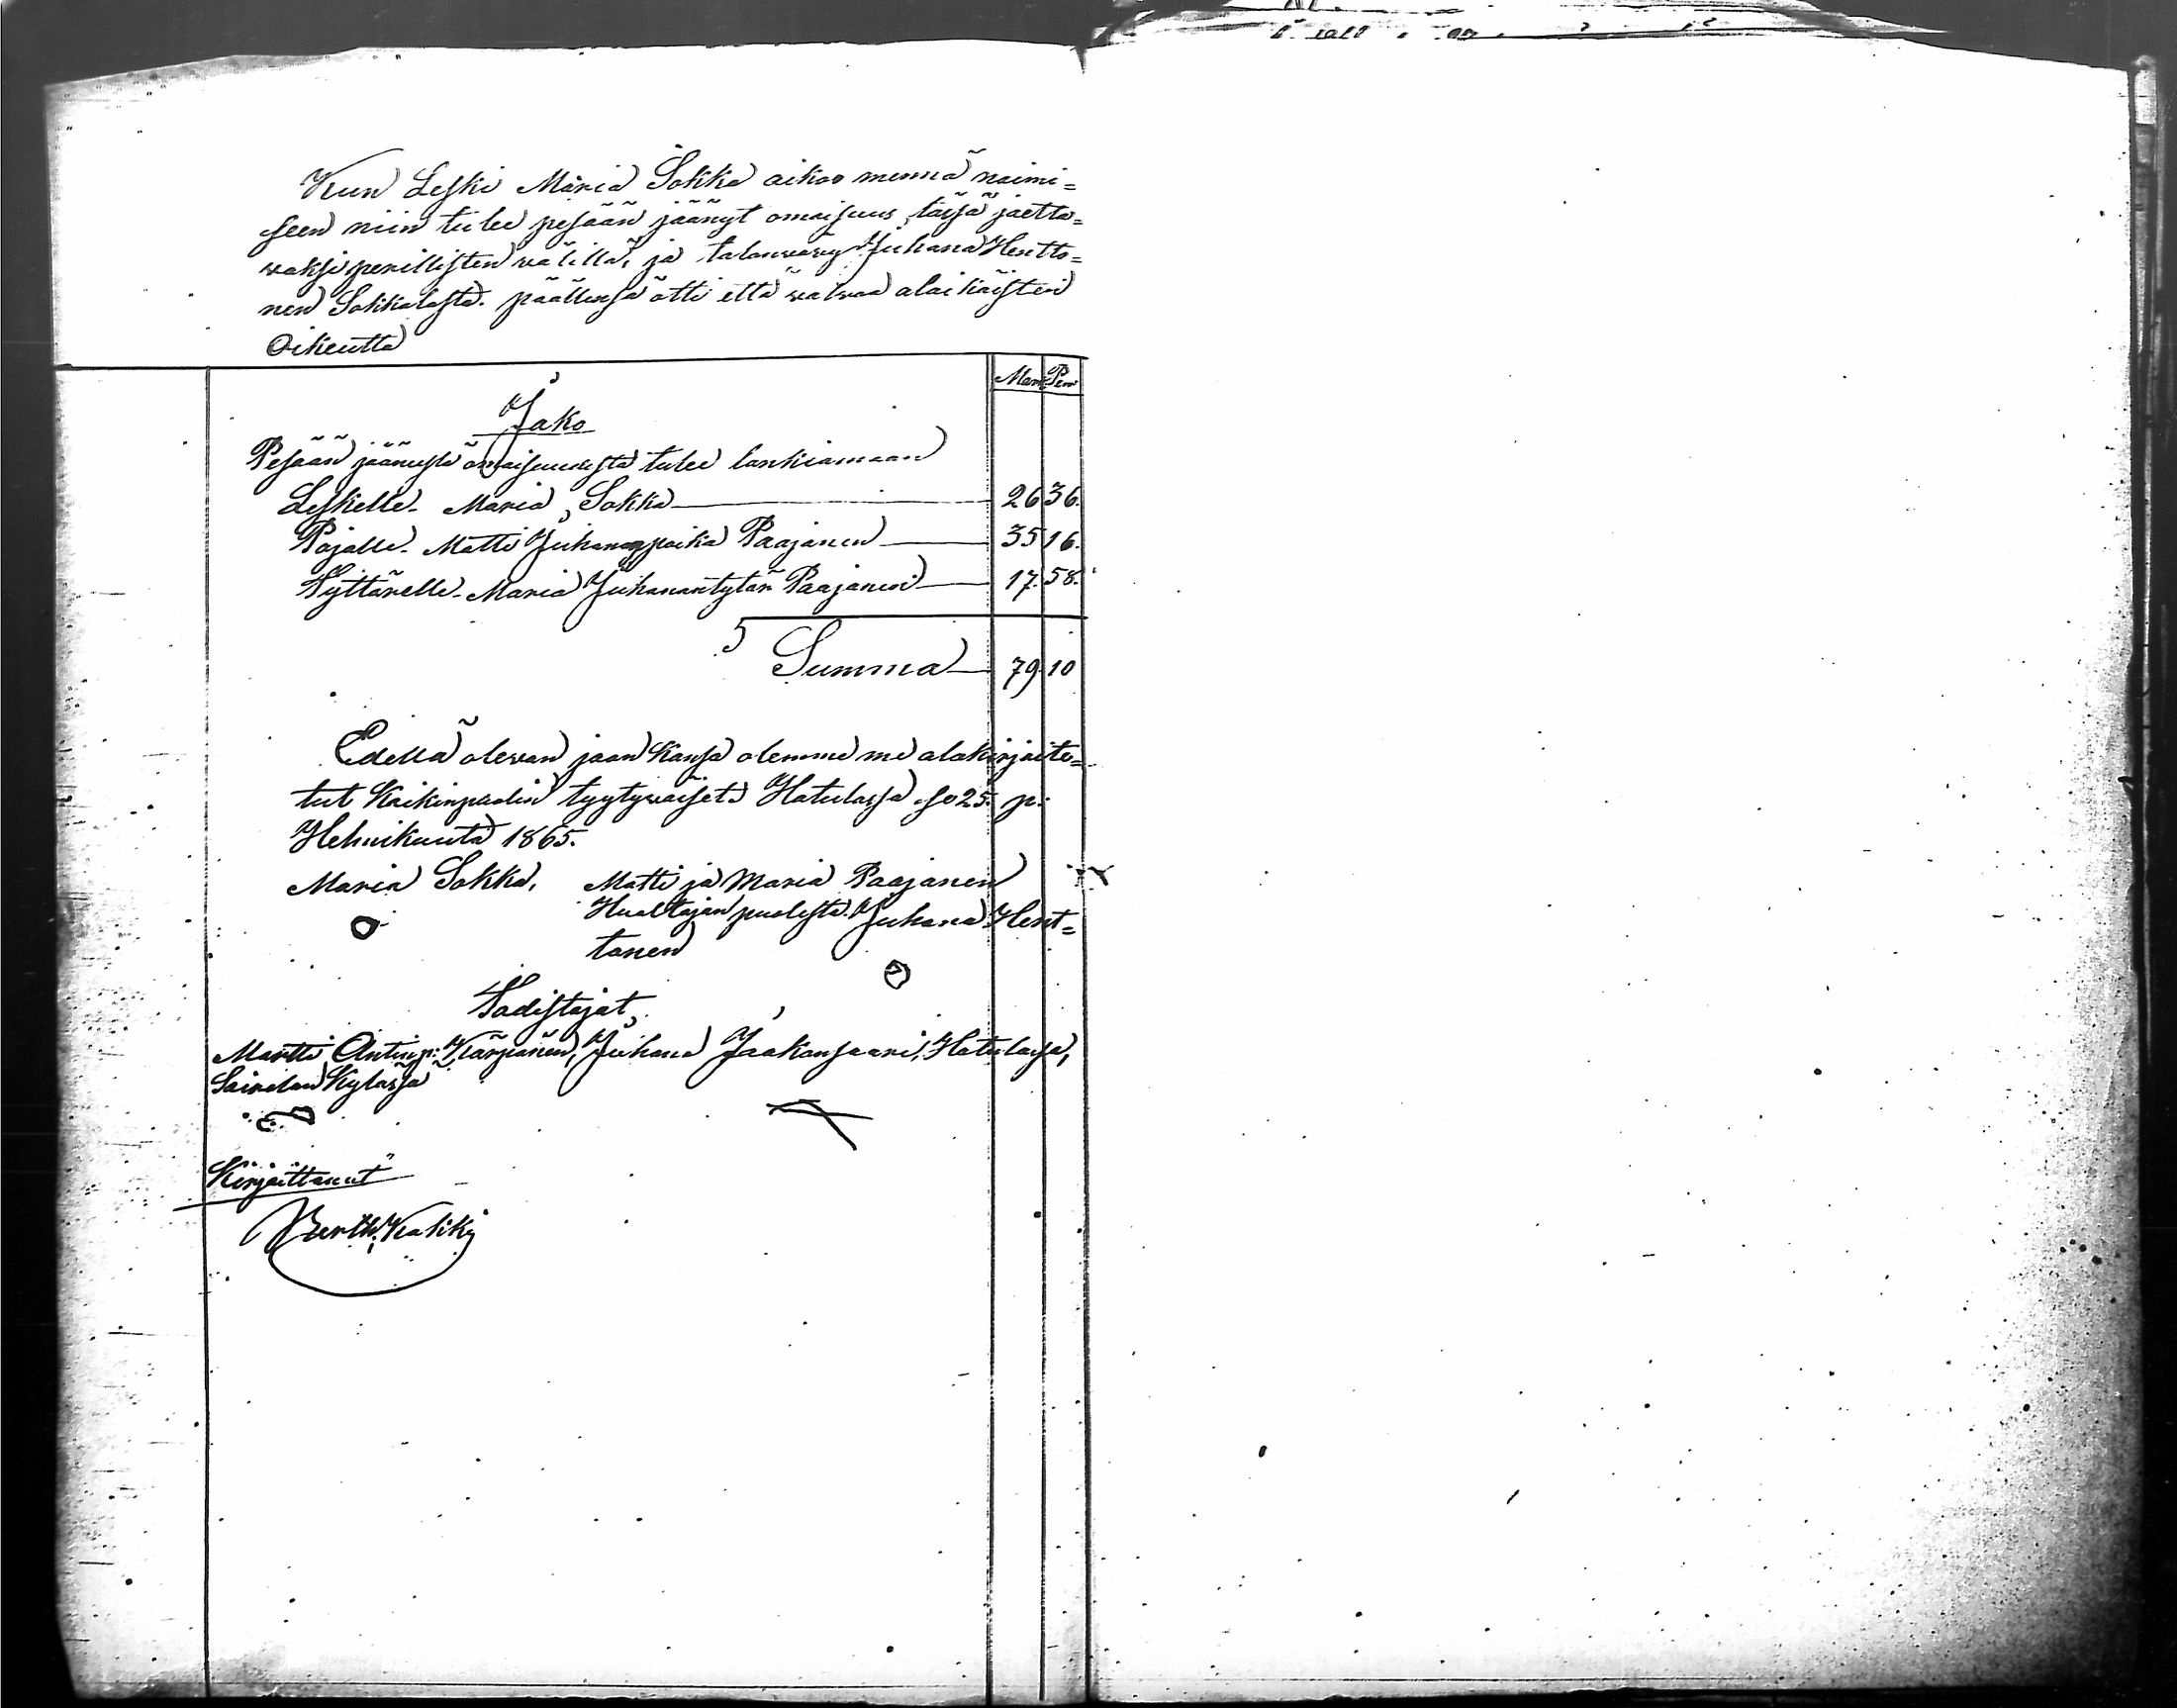 Kun Leski Maria Sokka aikoo mennä naimi=
seen niin tulee pesään jäänyt omaisuus tässä jaetta=
waksi perillisten wälillä, ja talonwäry Juhana Hentto=
nen Sokkalasta. päällensä otti että walwaa alaikäisten
Oikeutta
Mar Pen
Jako
Pesään jäänestä omaisuudesta tulee lankiamaan
Leskelle. Maria Sokka 26 36.
Pojalle. Matti Juhananpoika Paajanen 35 16.
Tyttärelle. Maria Juhanantytär Paajanen 17. 58.
Summa 79. 10
Edellä olewan jaon kansa olemme me alakirjoite=
tut kaikinpuolin tyytywäiset. Hatulassa so 25. p:
Helmikuuta 1865.
Maria Sokka, Matti ja Maria Paajanen
Huoltajan puolesta. Juhana Hent=
tonen
Todistajat,
Martti Antinp: Kärpänen, Juhana Jaakonsaari, Hatulassa,
Sairalan Kylässä
Kirjoittanut